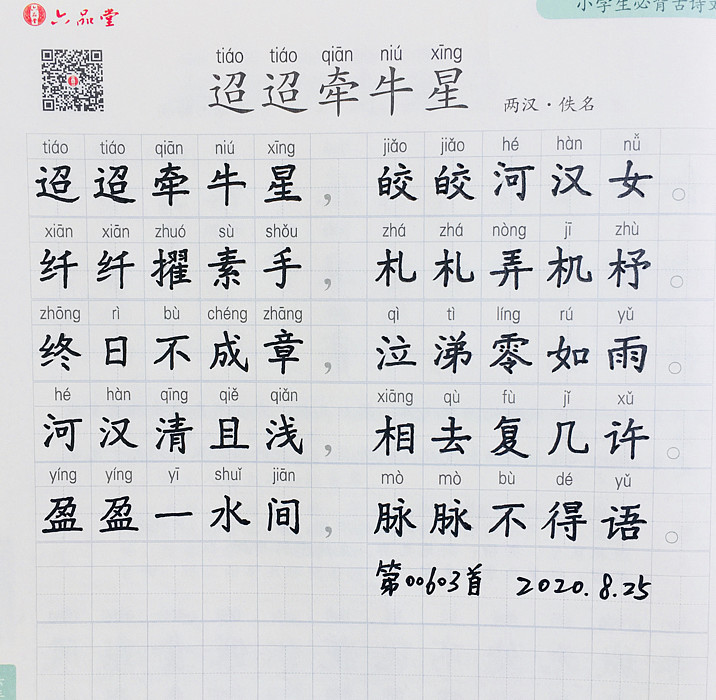 六品堂
小学生必背古诗文
tiáo tiáo qiān niú xīng
迢迢牵牛星
两汉·佚名
tiáo tiáo qiān niú xīng jiǎo jiǎo hé hàn nǚ
迢迢牵牛星，皎皎河汉女。
xiān xiān zhuó sù shǒu zhá zhá nòng jī zhù
纤纤擢素手，札札弄机杼。
zhōng rì bù chéng zhāng qì tì líng rú yǔ
终日不成章，泣涕零如雨。
hé hàn qīng qiě qiǎn xiāng qù fù jǐ xǔ
河汉清且浅，相去复几许。
yíng yíng yī shuǐ jiān mò mò bù dé yǔ
盈盈一水间，脉脉不得语。
第00603首 2020.8.25